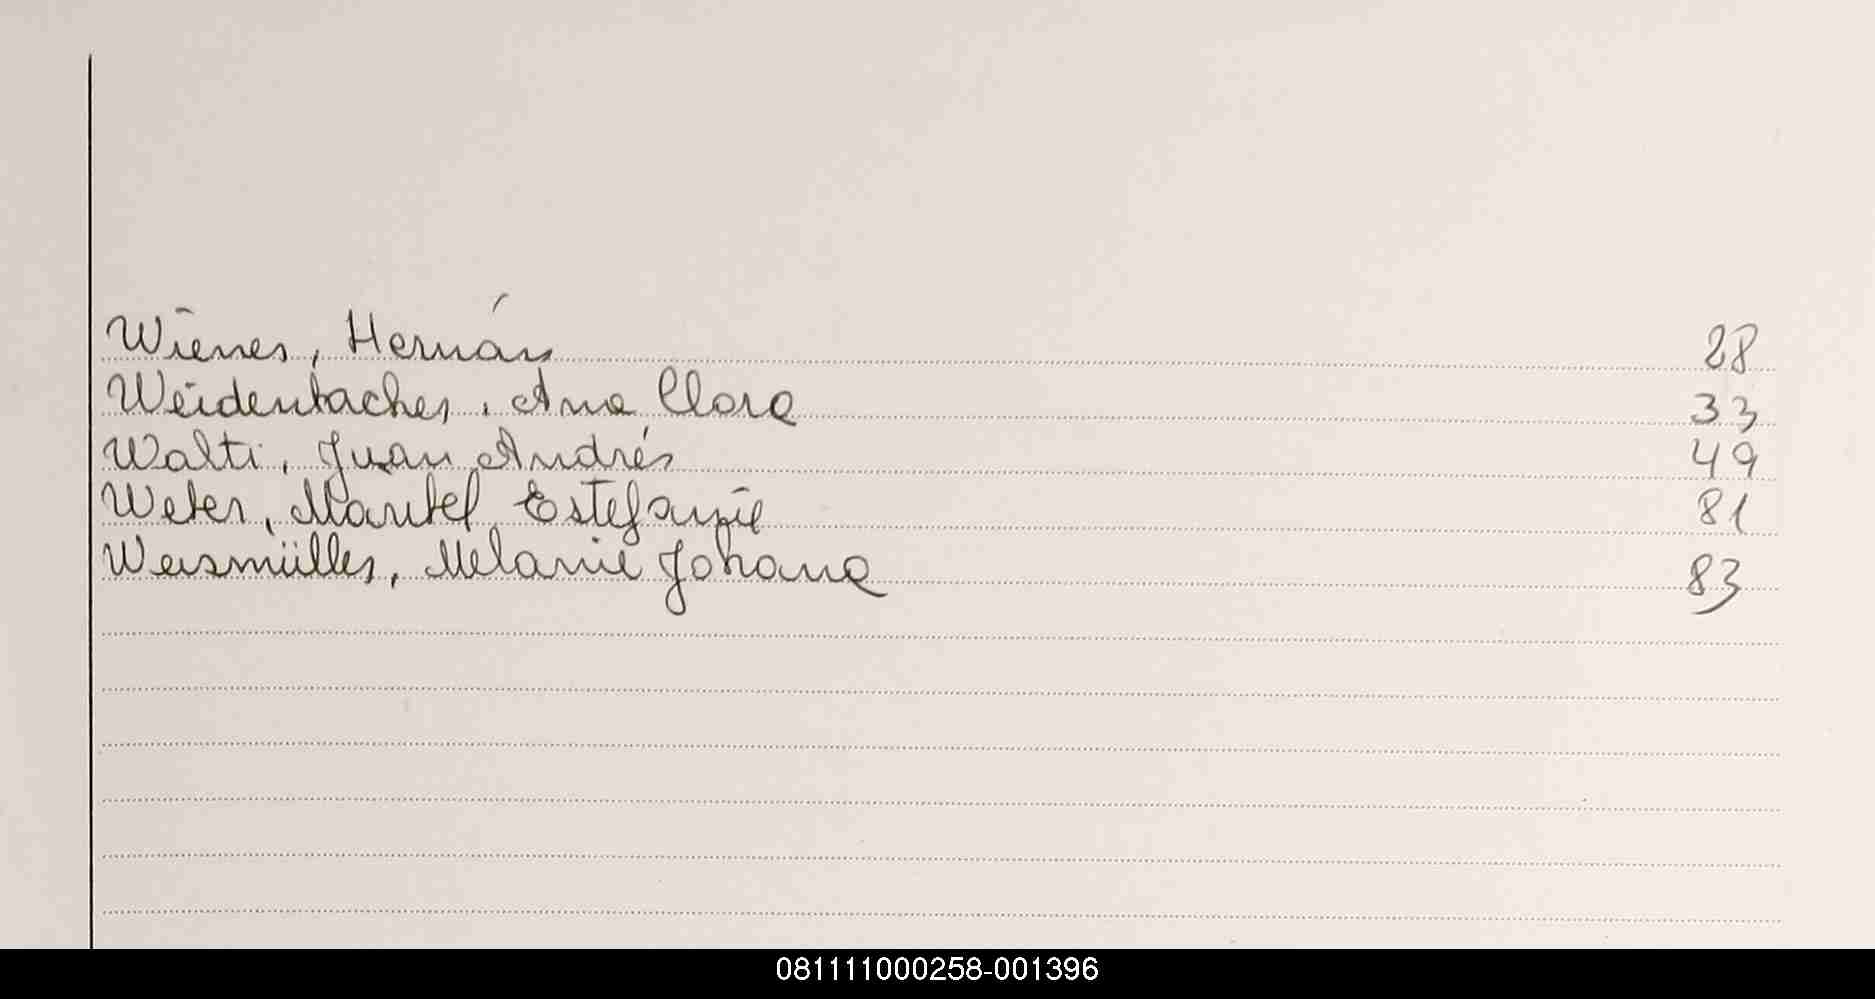 Wiener, Hernán 28
Weidenbacher, Ana Clara 33
Walti, Juan Andrés 49
Weber, Maribel Estefanie 81
Weismüller, Melanie Johana 83
081111000258-001396